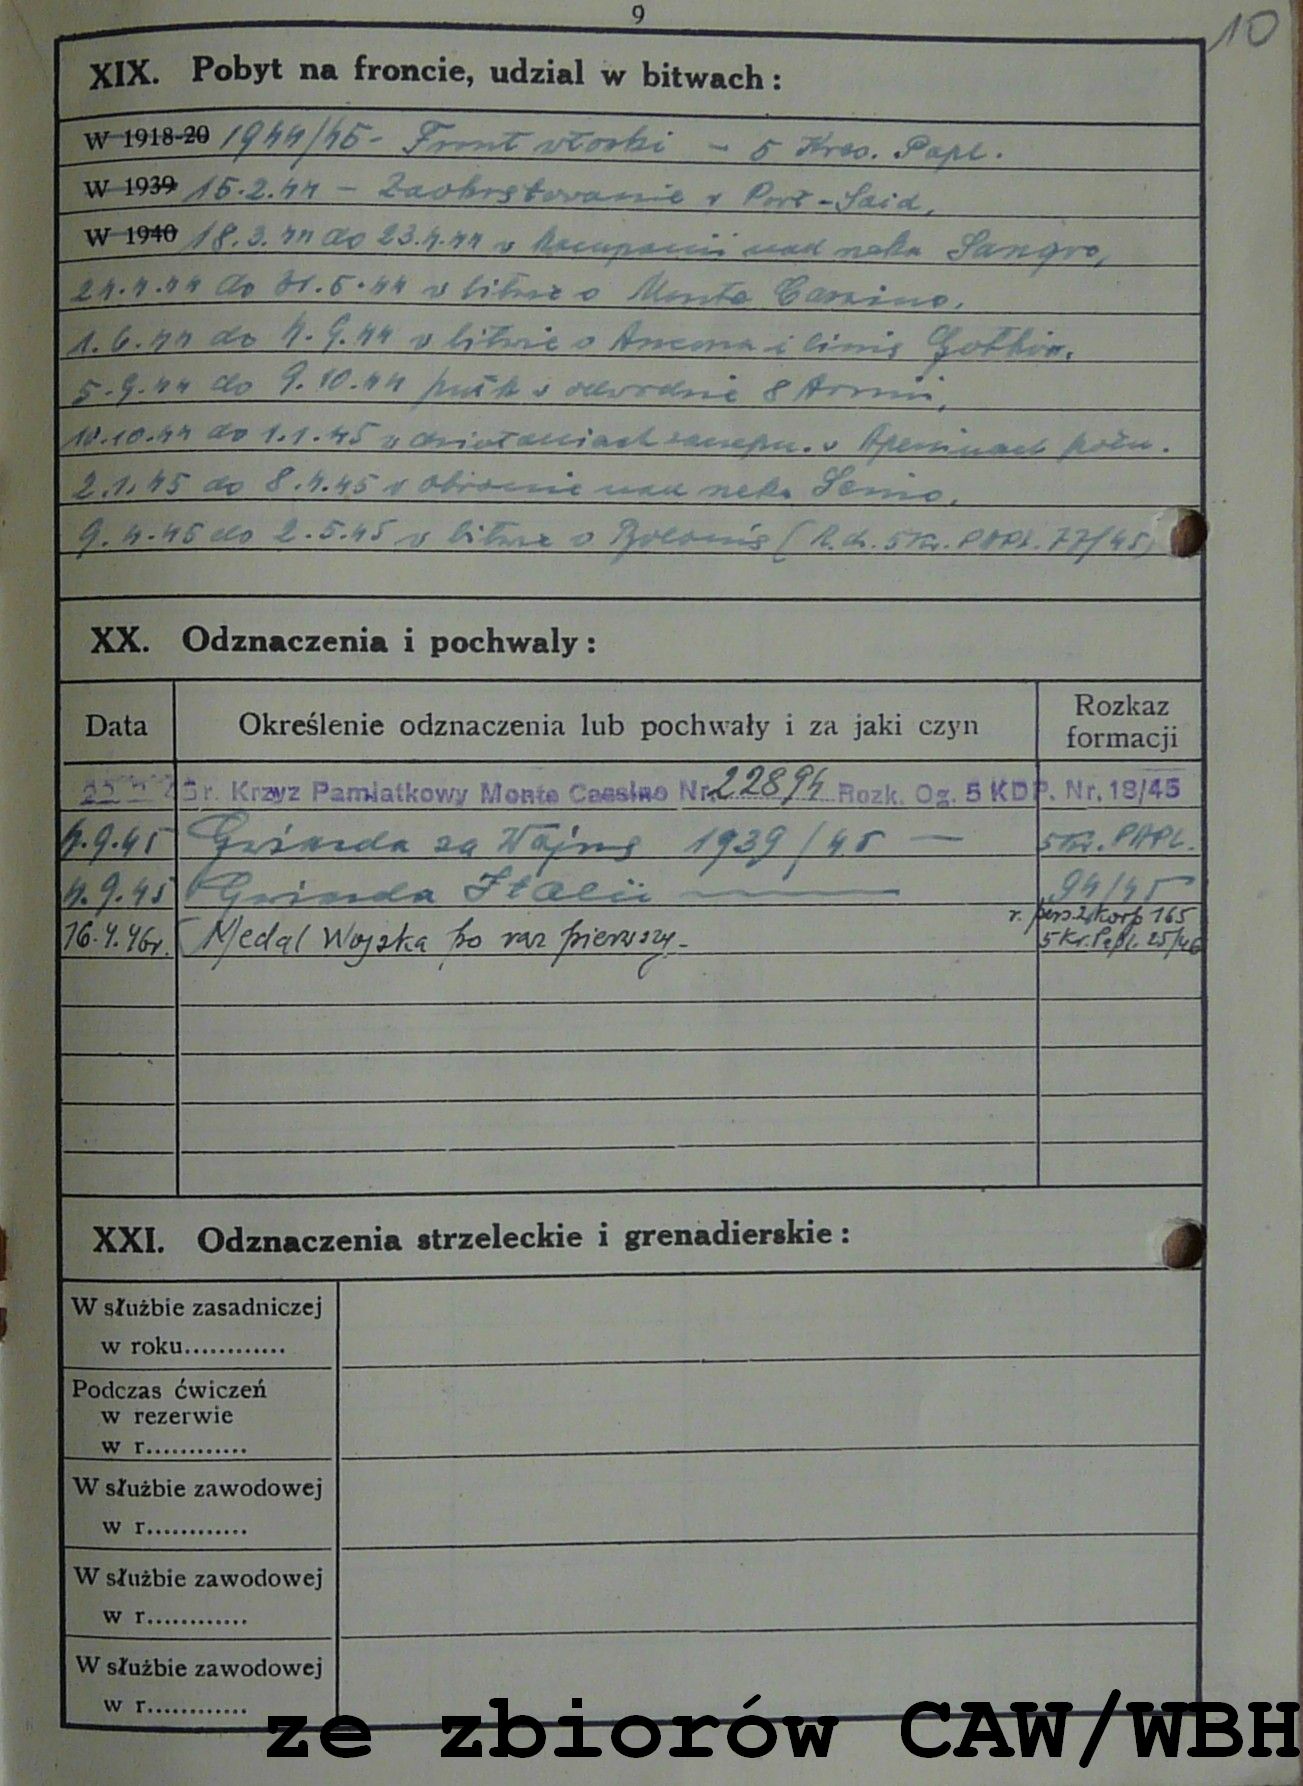 9
10
XIX. Pobyt na froncie, udzial w bitwach :
W 1918-20 1944/45 - Front włoski - 5 Kres. Papl.
W 1939 15.2.44 - Zaokrętowanie w Port-Said,
W 1940 18.3.44 do 23.4.44 w kampanii nad rzeką Sangro,
24.4.44 do 31.5.44 w bitwie o Monte Cassino,
1.6.44 do 4.9.44 w bitwie o Ancona i linię Gotków,
5.9.44 do 9.10.44 pułk w odwodzie 8 Armii,
10.10.44 do 1.1.45 w działaniach zaczepn. w Apeninach półn.
2.1.45 do 8.4.45 w obronie nad rzeką Senio,
9.4.45 do 2.5.45 w bitwie o Bolonię (R.d. 5 Kr. PAPL. 77/45)
XX. Odznaczenia i pochwaly :
Data Określenie odznaczenia lub pochwały i za jaki czyn Rozkaz formacji
Br. Krzyz Pamiatkowy Monte Cassino Nr. 22894 Rozk. Og. 5 KDP. Nr. 18/45
4.9.45 Gwiazda za Wojnę 1939/45 — 5 Kr. PAPL.
4.9.45 Gwiazda Italii — 94/45
r. pers 2 Korp 165
16.4.46r. Medal Wojska po raz pierwszy - 5 Kr. Papl. 25/46
XXI. Odznaczenia strzeleckie i grenadierskie :
W służbie zasadniczej
w roku............
Podczas ćwiczeń
w rezerwie
w r............
W służbie zawodowej
w r............
W służbie zawodowej
w r............
W służbie zawodowej
w r............
ze zbiorów CAW/WBH